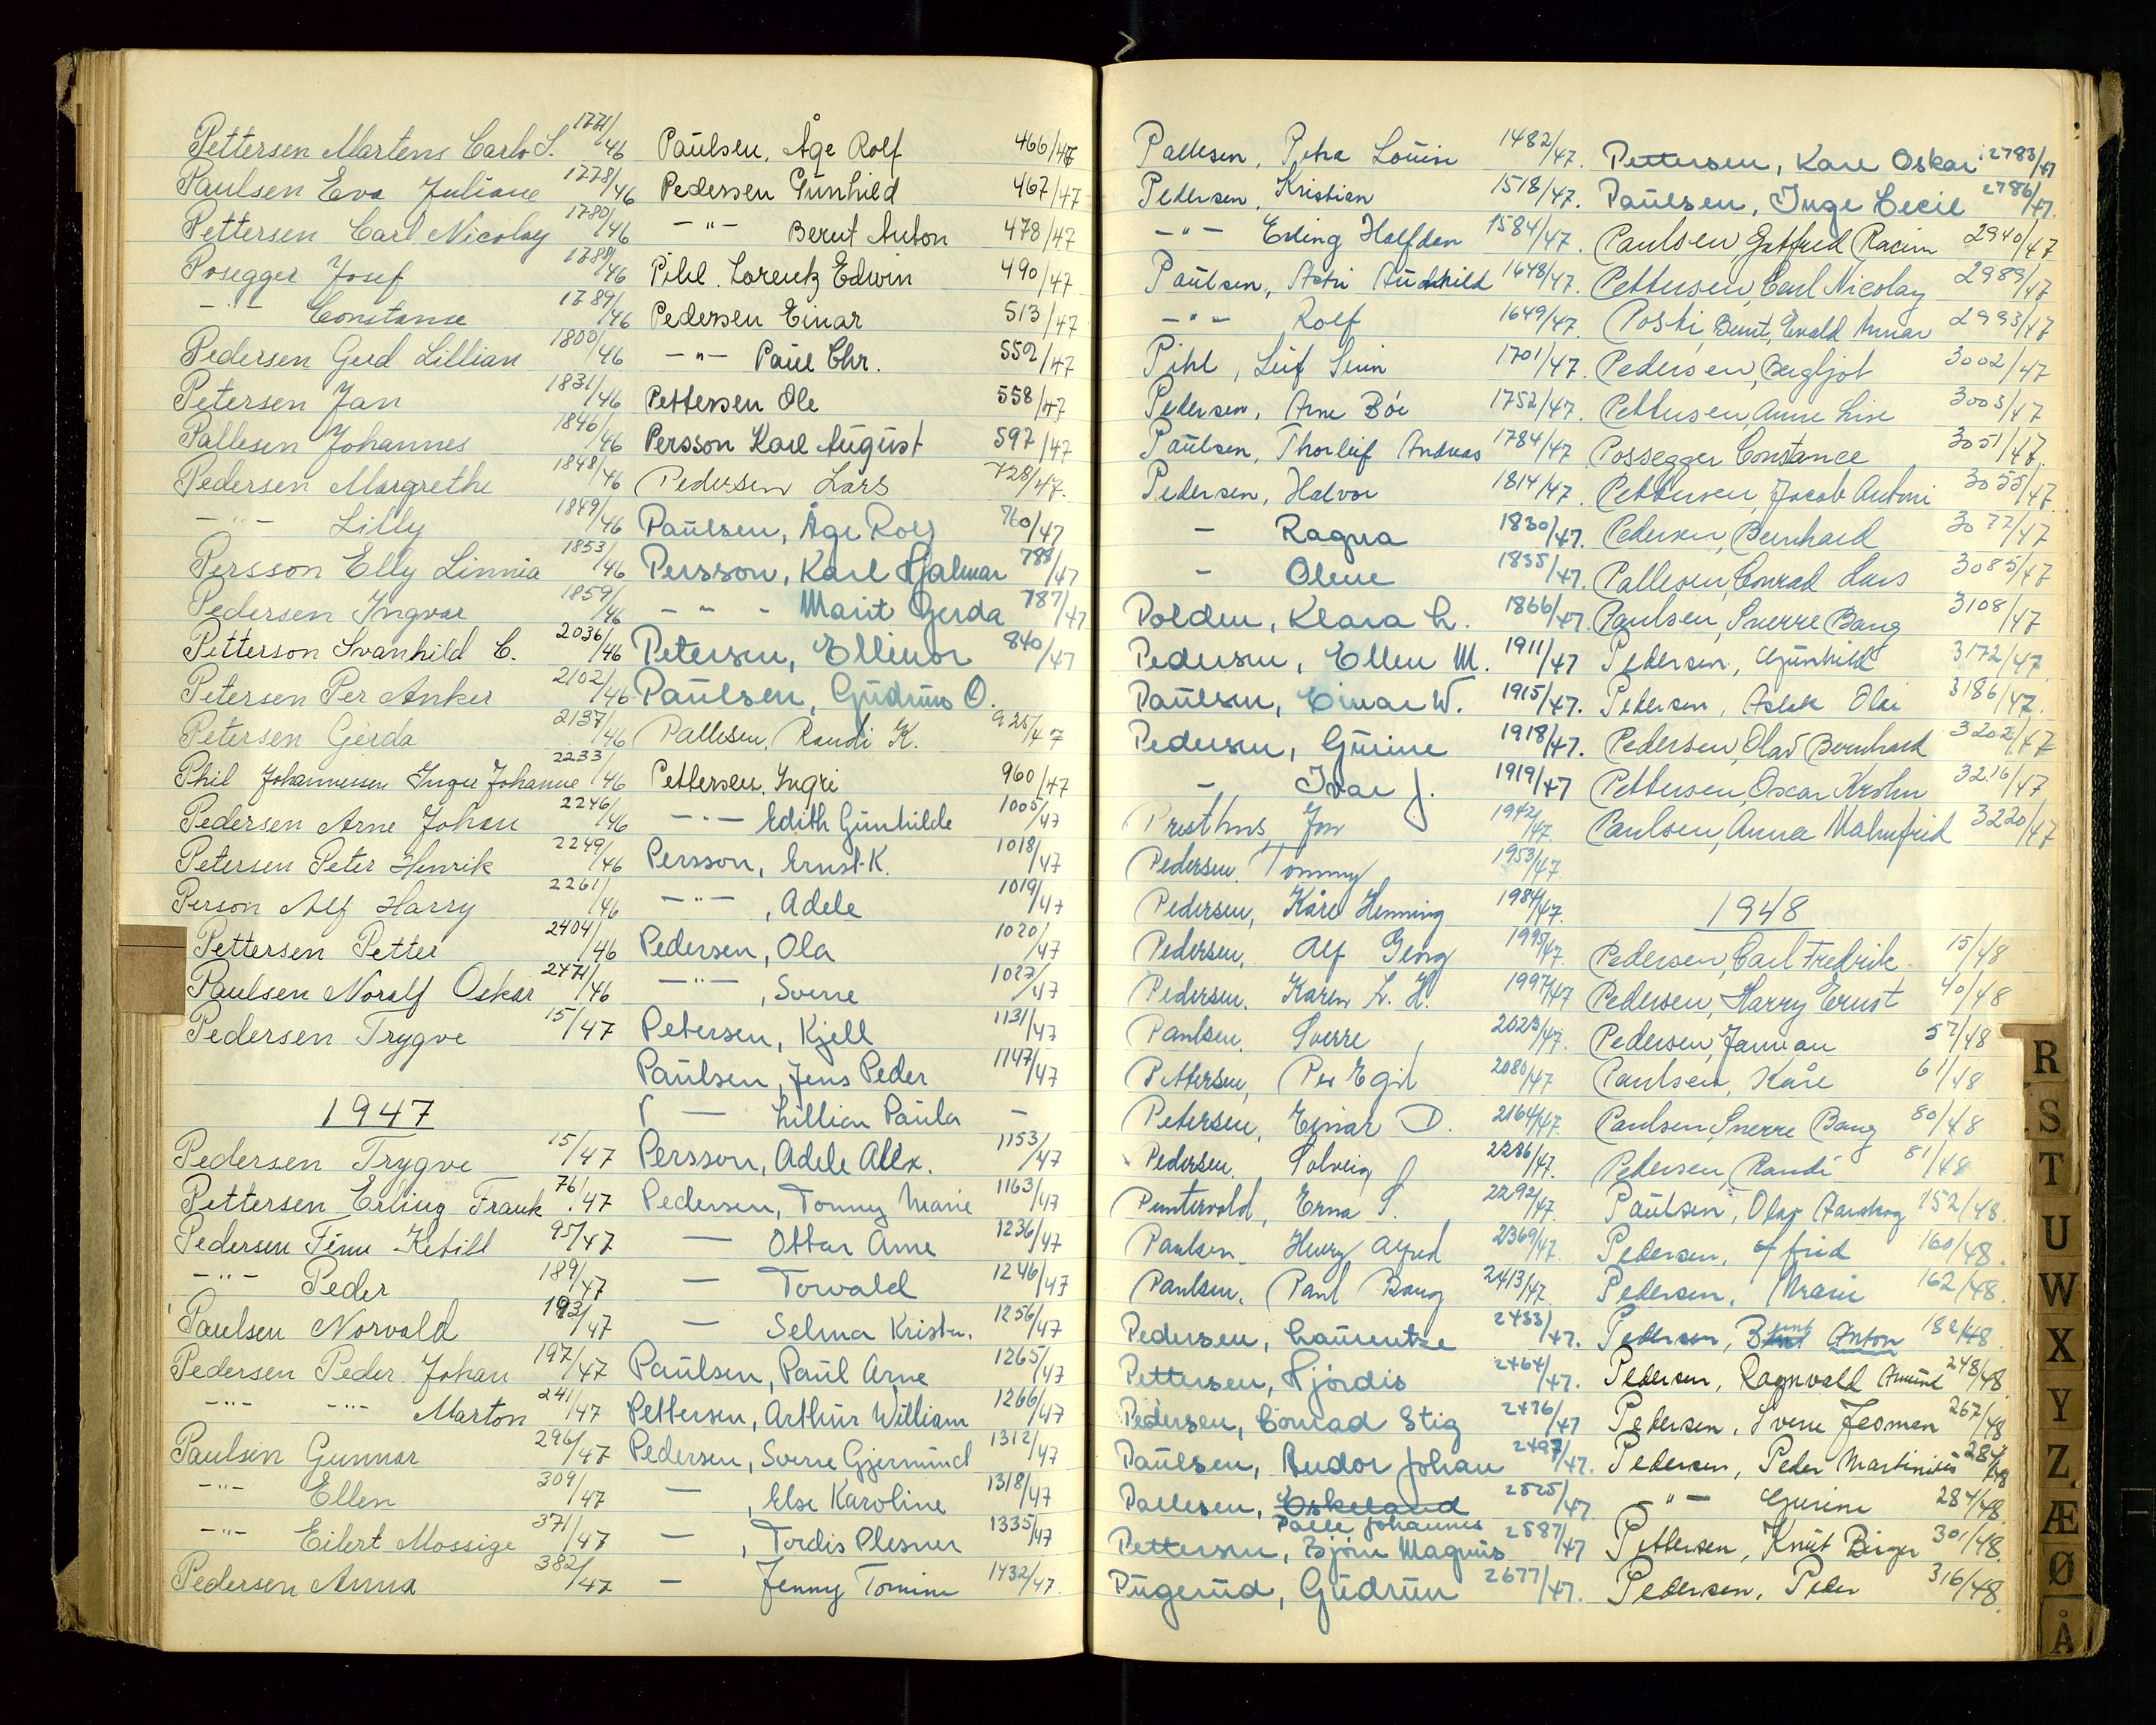 Pettersen Martens Carlo S. 1771/46
Paulsen Eva Juliane 1778/46
Pettersen Carl Nicolay 1780/46
Posegger Josef 1789/46
-"- Constanse 1789/46
Pedersen Gerd Lillian 1800/46
Petersen Jan 1831/46
Pallesen Johannes 1846/46
Pedersen Margrethe 1848/46
-"- Lilly 1849/46
Persson Elly Linnia 1853/46
Pedersen Ingvar 1859/46
Petterson Svanhild C. 2036/46
Petersen Per Anker 2102/46
Petersen Gerda 2137/46
Phil Johannessen Inger Johanne 2233/46
Pedersen Arne Johan 2246/46
Petersen Peter Henrik 2249/46
Person Alf Harry 2261/46
Pettersen Petter 2404/46
Paulsen Noralf Oskar 2471/46
Pedersen Trygve 15/47
1947
Pedersen Trygve 15/47
Pettersen Erling Frank 76/47
Pedersen Finn Ketill 95/47
-"- Peder 189/47
Paulsen Norvald 193/47
Pedersen Peder Johan 197/47
-"- -"- Marton 241/47
Paulsen Gunnar 296/47
-"- Ellen 309/47
-"- Eilert Mossige 371/47
Pedersen Anna 382/47
Paulsen, Åge Rolf 466/47
Pedersen Gunhild 467/47
-"- Bernt Anton 478/47
Pihl. Lorentz Edwin 490/47
Pedersen Einar 513/47
-"- Paul Chr. 552/47
Pettersen Ole 558/47
Persson Karl August 597/47
Pedersen Lars 728/47.
Paulsen, Åge Rolf 760/47
Persson, Karl Hjalmar 788/47
- " - Marit Gerda 787/47
Petersen, Ellinor 840/47
Paulsen, Gudrun O.
Pallesen, Randi K. 925/47
Pettersen, Ingri 960/47
-"- Edith Gunhilde 1005/47
Persson, Ernst K. 1018/47
-"-, Adele 1019/47
Pedersen, Ola 1020/47
-"-, Sverre 1027/47
Petersen, Kjell 1131/47
Paulsen, Jens Peder 1147/47
- Lillian Paula -
Persson, Adele Alex. 1153/47
Pedersen, Tonny Marie 1163/47
- Ottar Arne 1236/47
- Torvald 1246/47
- Selma Kristn. 1256/47
Paulsen, Paul Arne 1265/47
Pettersen, Arthur William 1266/47
Pedersen, Sverre Gjermund 1312/47
-, Else Karoline 1318/47
-, Tordis Plesner 1335/47
- Jenny Tomine 1432/47.
Pallesen, Petra Louise 1482/47.
Pedersen, Kristian 1518/47.
-"- Erling Halfdan 1584/47.
Paulsen, Astri Audhild 1648/47.
-"- Rolf 1649/47.
Pihl, Leif Sein 1701/47.
Pedersen, Arne Bór 1752/47.
Paulsen, Thorleif Andreas 1784/47
Pedersen, Halvor 1814/47.
- Ragna 1830/47.
- Olene 1835/47.
Polden, Klara L. 1866/47.
Pedersen, Ellen M. 1911/47
Paulsen, Einar W. 1915/47.
Pedersen, Gurine 1918/47.
- Ivar J. 1919/47
Presthus, Jon 1942/47.
Pedersen, Tommy 1953/47.
Pedersen, Kåre Henning 1984/47.
Pedersen, Alf Georg 1995/47.
Pedersen. Karen L. H. 1997/47
Paulsen. Sverre 2023/47.
Pettersen, Per Egil 2080/47
Petersen, Einar D. 2164/47.
Pedersen. Solveig 2286/47.
Puntervold, Erna S. 2292/47.
Paulsen. Henry Alfred 2369/47.
Paulsen. Paul Bang 2413/47.
Pedersen, Laurentze 2433/47.
Pettersen, Hjördis 2464/47.
Pedersen, Conrad Stig 2476/47
Paulsen, Andor Johan 2497/47.
Pallesen, Eskeland 2525/47.
Palle Johannes
Pettersen, Björn Magnus 2587/47
Pugerud, Gudrun 2677/47.
Pettersen, Kare Oskar 2783/47
Paulsen, Inge Cecil 2786/47.
Paulsen, Gotfred Racin 2940/47
Pettersen, Carl Nicolay 2989/47
Poski, Bernt, Evald Annar 2993/47
Pedersen, Bergljot 3002/47
Pettersen, Anne Lise 3003/47
Possegger Constance 3051/47.
Pettersen, Jacob Antoni 3055/47.
Pedersen, Bernhard 3077/47
Pallesen, Conrad Lars 3085/47
Paulsen, Sverre Bang 3108/47
Pedersen, Gunhild 3172/47.
Pedersen, Aslak Olai 3186/47.
Pedersen, Olav Bernhard 3202/47
Pettersen, Oscar Krohn 3216/47
Paulsen, Anna Malmfrid 3220/47
1948
Pedersen, Carl Fredrik 15/48
Pedersen, Harry Ernst 40/48
Pedersen, Janman 57/48
Paulsen, Kåre 61/48
Paulsen, Sverre Bang 80/48
Pedersen, Randi 81/48
Paulsen, Olav Aarskog 152/48.
Pedersen, Alfrid 160/48.
Pedersen, Marie 162/48.
Pedersen, Bernt Anton 182/48.
Pedersen, Ragnvald Amund 248/48.
Pedersen, Sverre Jesman 267/48
Pedersen, Peder Martinius 284/48
-"- Gurine 284/48.
Pettersen, Knut Birger 301/48.
Pedersen, Peder 316/48.
R
S
T
U
W
X
Y
Z
Æ
Ø
Å